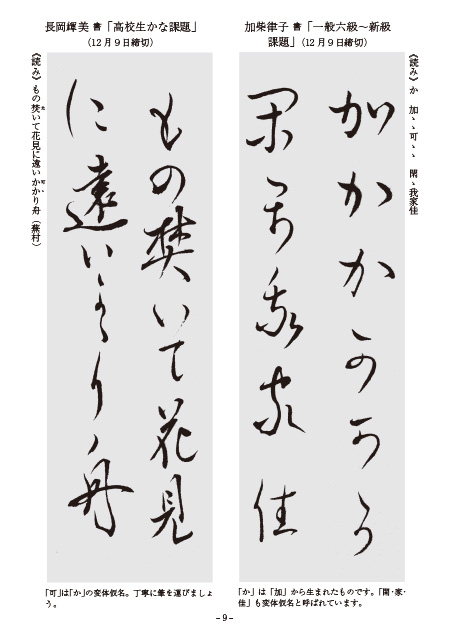 加柴律子 書「一般六級～新級
課題」（12月９日締切）
《読み》か　加ゝゝ可ゝゝ　閑ゝ我家佳
加かか可可可
閑閑我家佳
「か」は「加」から生まれたものです。「閑・家・
佳」も変体仮名と呼ばれています。
長岡輝美 書「高校生かな課題」
（12月９日締切）
《読み》もの焚いて花見に遠いかかり舟（蕪村）
もの焚いて花見
に遠いかゝり舟
「可」は「か」の変体仮名。丁寧に筆を運びましょ
う。
－9－